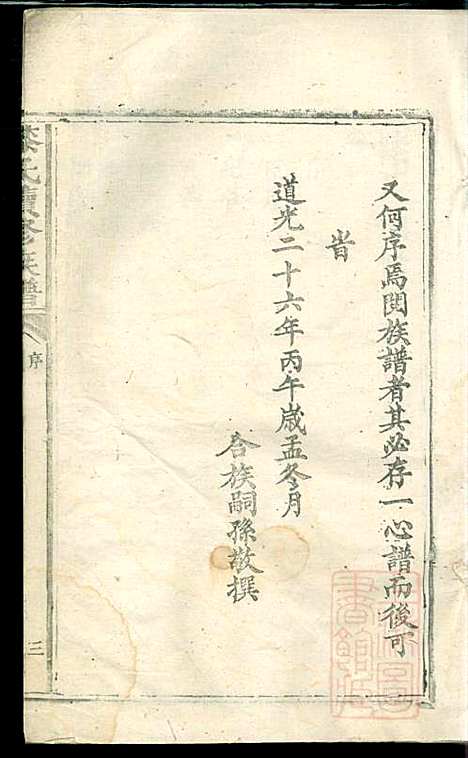 又何序焉閱族譜者其必存一心譜而後可
旹
道光二十六年丙午歲孟冬月
合族嗣孫敬撰
氏續修族譜
序
三
書館